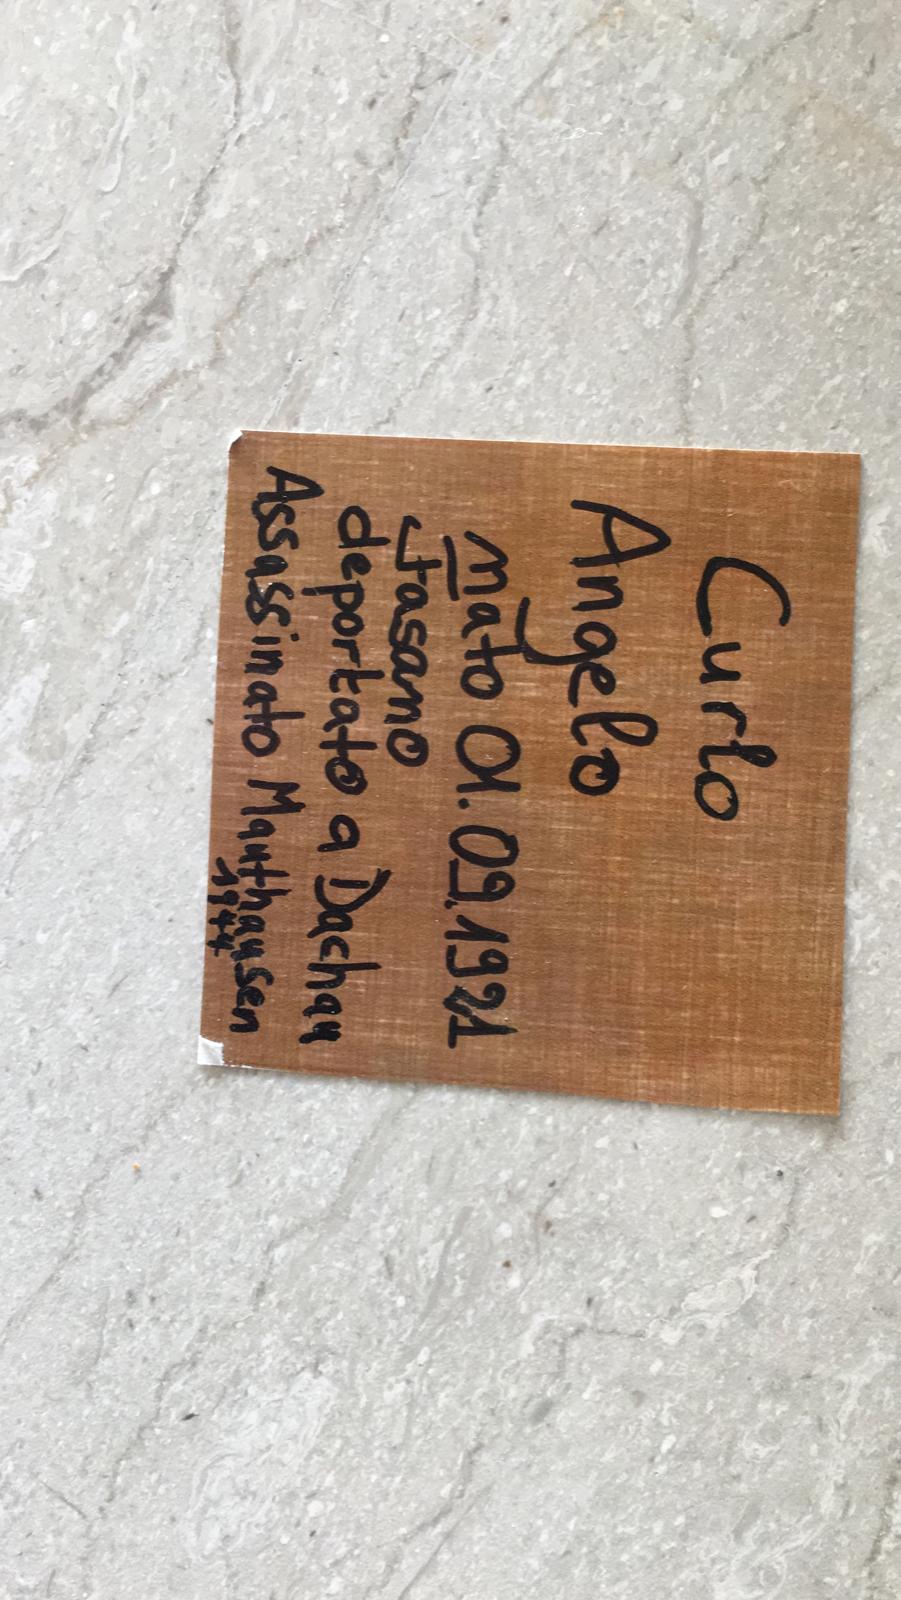 Curlo
Angelo
nato 01.09.1921
Fasano
deportato a Dachau
Assassinato Mauthausen
1944